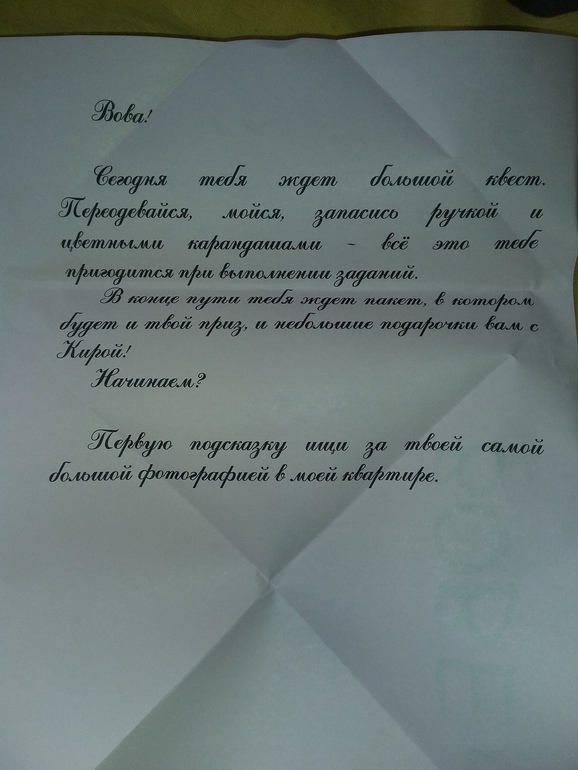 Вова!
Сегодня тебя ждет большой квест.
Переодевайся, мойся, запасись ручкой и
цветными карандашами - всё это тебе
пригодится при выполнении заданий.
В конце пути тебя ждет пакет, в котором
будет и твой приз, и небольшие подарочки вам с
Кирой!
Начинаем?
Первую подсказку ищи за твоей самой
большой фотографией в моей квартире.